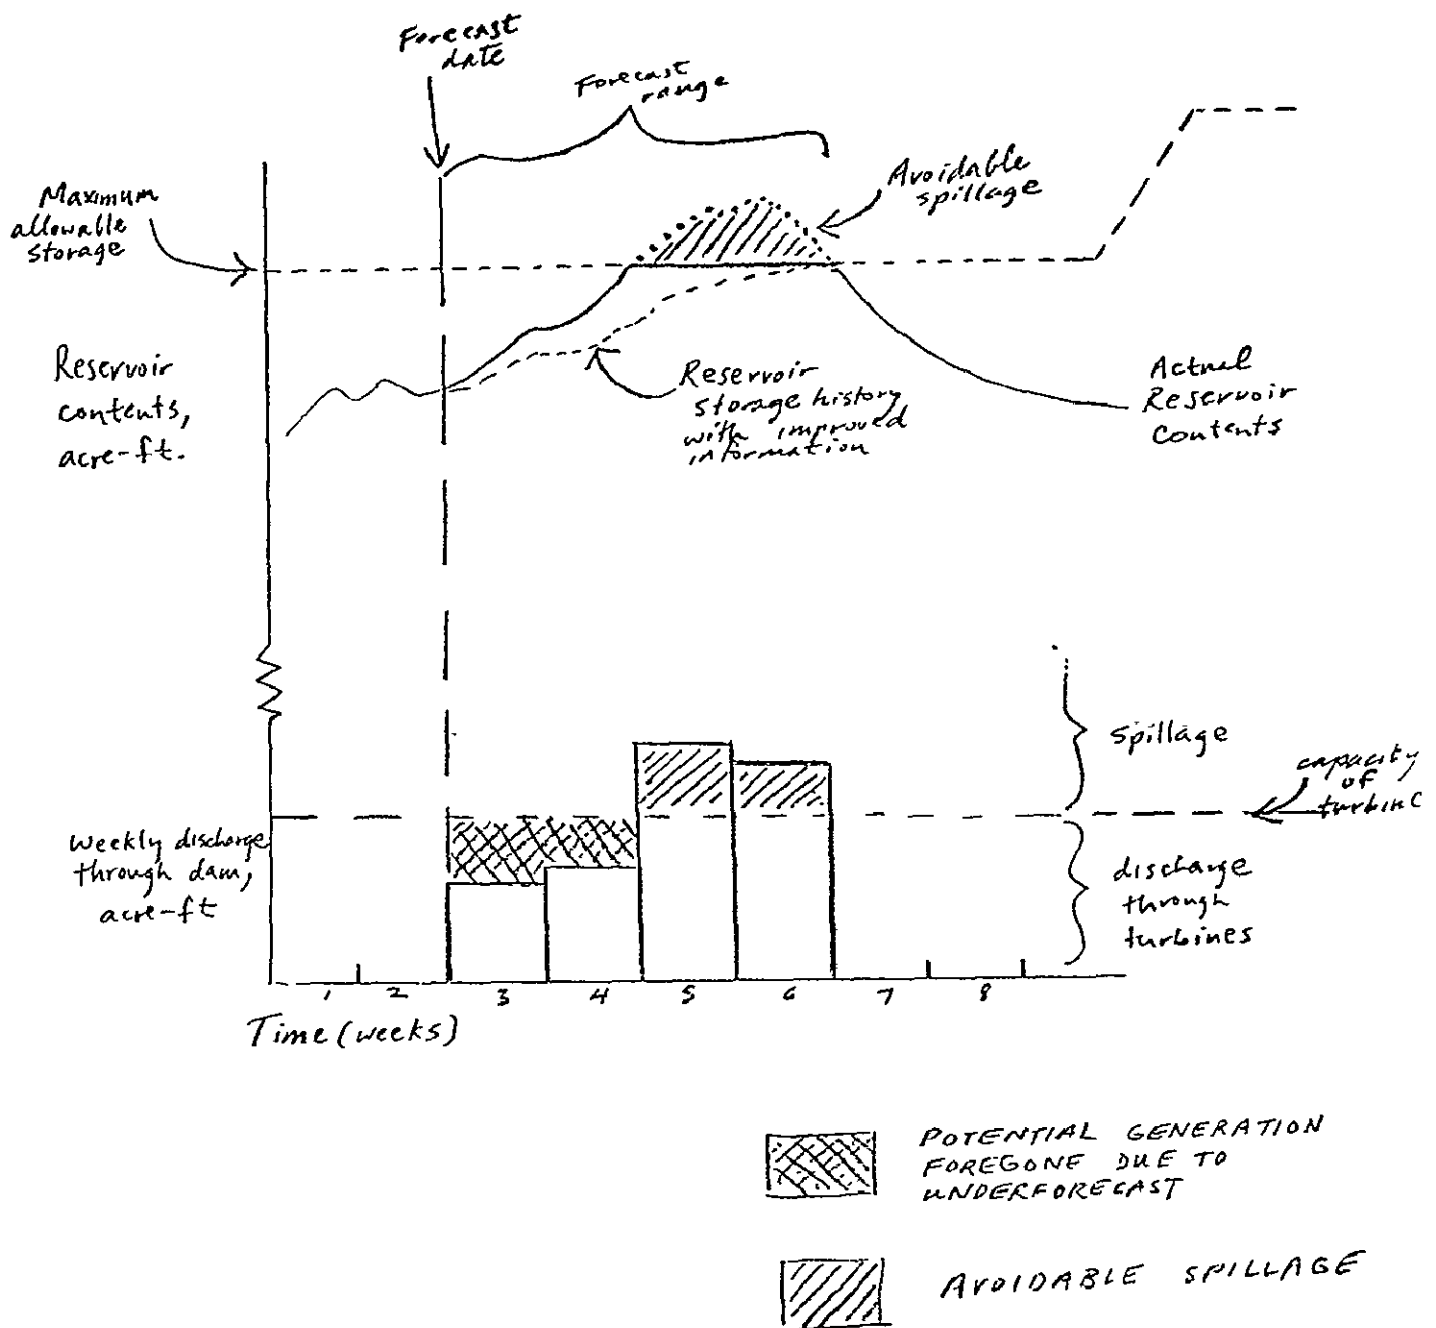 Forecast
date
Forecast
range
Avoidable
spillage
Maximum
allowable
storage
Reservoir
contents,
acre-ft.
Reservoir
storage history
with improved
information
Actual
Reservoir
Contents
Spillage
capacity
of
turbine
Weekly discharge
through dam,
acre-ft
discharge
through
turbines
1 2 3 4 5 6 7 8
Time (weeks)
POTENTIAL GENERATION
FOREGONE DUE TO
UNDERFORECAST
AVOIDABLE SPILLAGE